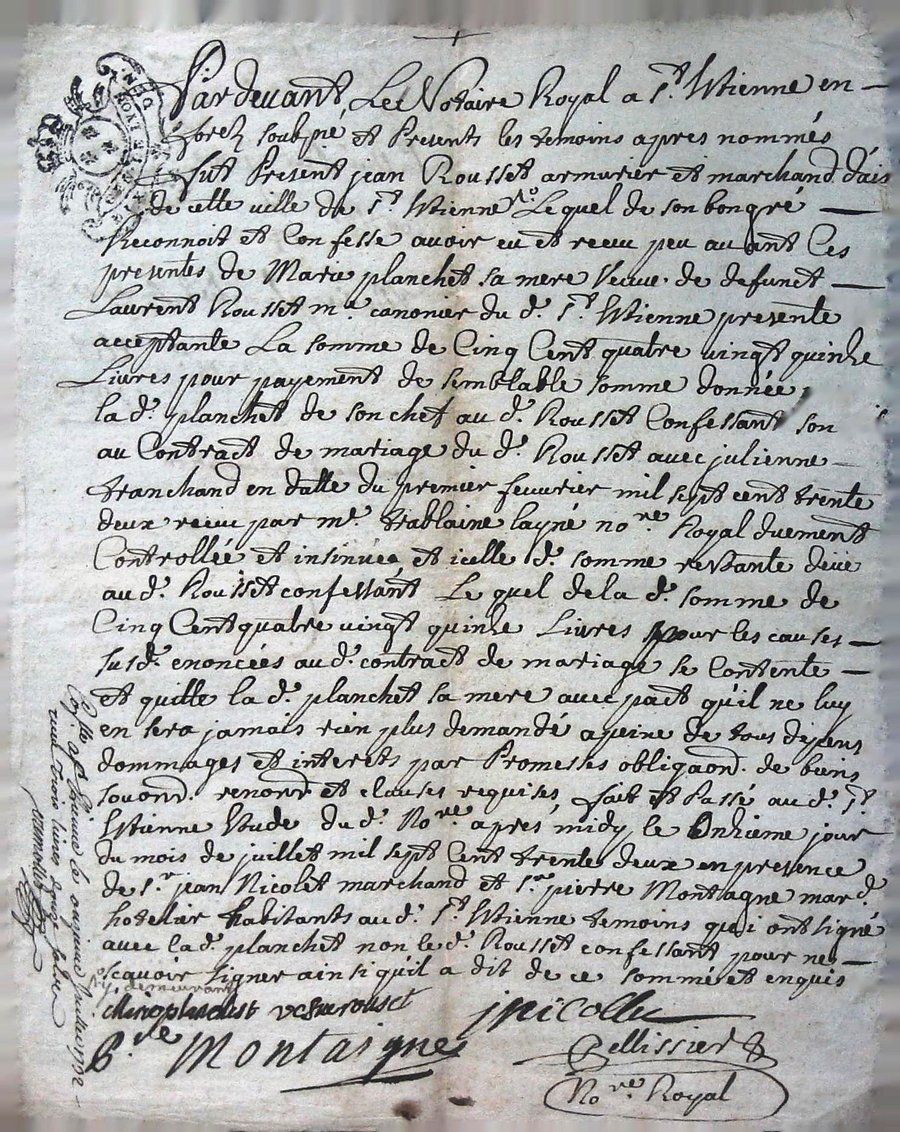 Pardevant Le Notaire Royal a St. Etienne en
forez soubsné et Presents les temoins apres nommés
fut Present jean Rousset armurier et marchand d'ais
de cette ville de St. Etienne Lequel de son bon gré
Reconnoit et Confesse avoir eu et receu peu auvant Ces
presentes de Marie planchet sa mere veuve de defunct
Laurent Rousset me. canonier du d. St. Etienne presente
acceptante La somme de Cinq Cent quatre vingt quinze
Livres pour payement de semblable somme donnée
la d. planchet de son chef au d. Rousset Confessant son
au Contract de mariage du d. Rousset avec julienne
tranchand en datte du premier feuvrier mil sept cent trente
deux receu par me. trablaine layné nore Royal duement
Controllée et insinuée et icelle d. somme restante deüe
au d. Rousset confessant Le quel de la d. somme de
Cinq Cent quatre vingt quinze Livres pour les causes
susd. enoncées au d. contract de mariage se Contente
et quitte la d. planchet sa mere avec pact qu'il ne luy
en sera jamais rien plus demandé a peine de tous depens
dommages et interets par Promesses obligaond. de biens
soumond. renond. et clauses requises fait et Passé au d. St.
Etienne Etude du d. Nore après midy le Onzieme jour
du mois de juillet mil sept Cent trente deux en presence
de Sr. jean Nicolet marchand et Sr. pierre Montagne mard.
hotelier habitants au d. St. Etienne temoins qui ont signé
avec la d. planchet non le d. Rousset confessant pour ne
scavoir signer ainsi qu'il a dit de ce sommé et enquis
planchet veuve rouset
jnicollet
Montaigne
Pellissier
Nore Royal
Conllé a St. Etienne le onzieme juillet 1732
receu trois livres douze sols